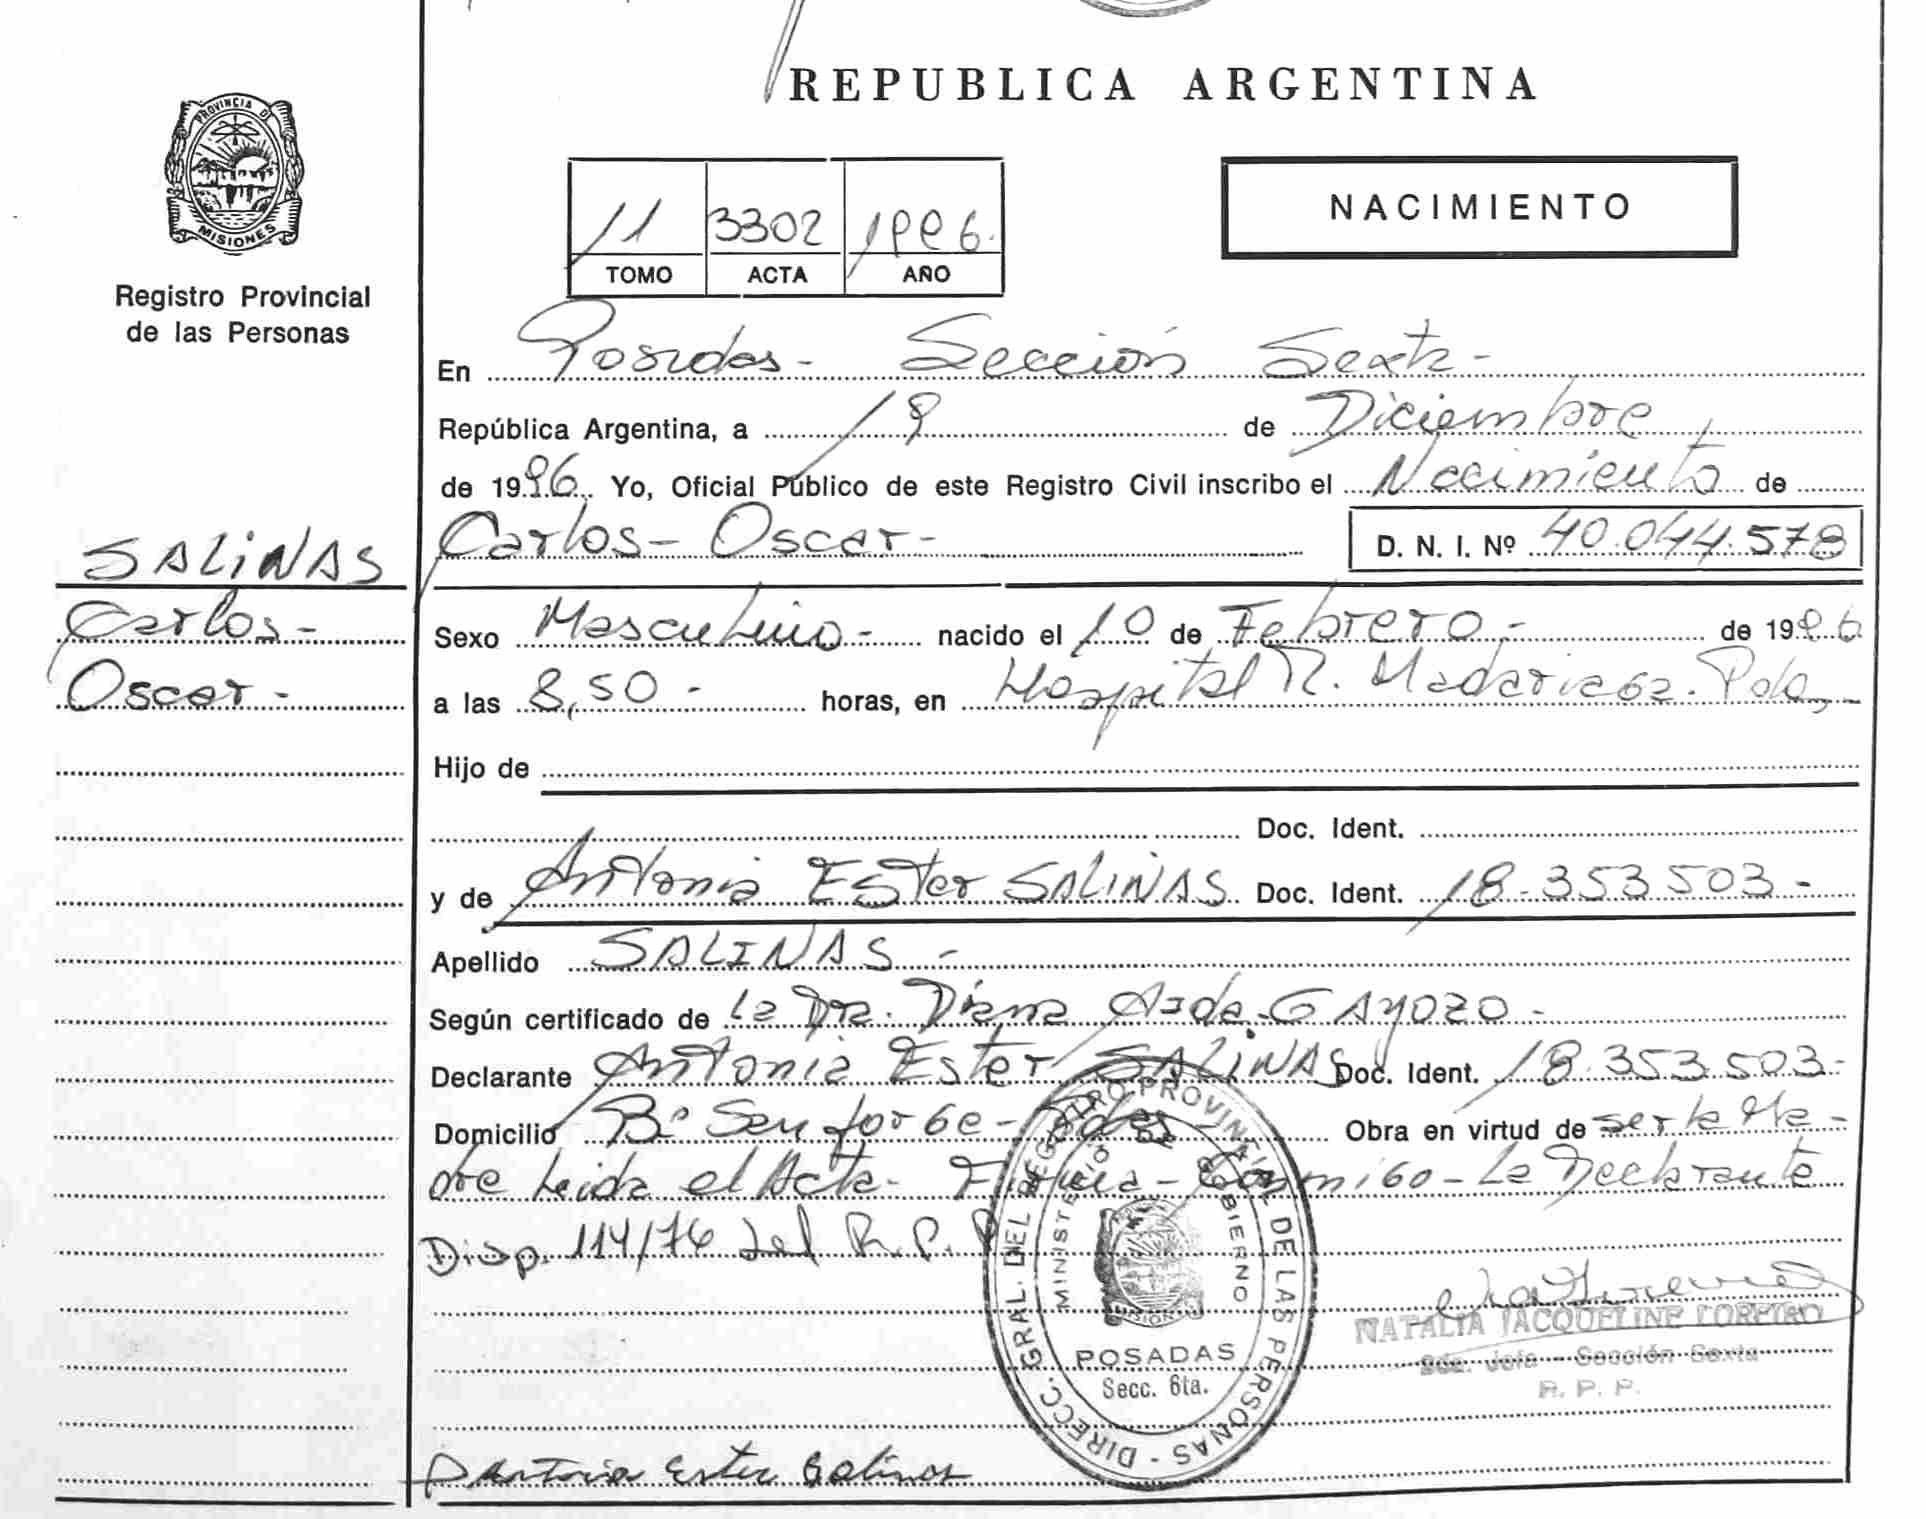 REPUBLICA ARGENTINA
PROVINCIA D
MISIONES
Registro Provincial
de las Personas
11 3302 1996.
TOMO ACTA AÑO
NACIMIENTO
En Posadas- Sección Sexta-
República Argentina, a 19 de Diciembre
de 1996. Yo, Oficial Público de este Registro Civil inscribo el Nacimiento de
Carlos- Oscar- D. N. I. Nº 40.044.578
SALINAS
Carlos-
Oscar-
Sexo Masculino- nacido el 10 de Febrero.- de 1996
a las 8,50- horas, en Hospital R. Madariaga. Pdas,-
Hijo de
Doc. Ident.
y de Antonia Ester SALINAS Doc. Ident. 18.353503-
Apellido SALINAS-
Según certificado de la Dra. Diana GAYOZO-
Declarante Antonia Ester SALINAS Doc. Ident. 18.353.503-
Domicilio Bº San Jorge- Pdas- Obra en virtud de ser la Ma-
dre Leida el Acta- Firma- Conmigo- La Declarante
Disp. 114/76 del R.P.P
DIRECC. GRAL. DEL REGISTRO PROVINCIAL DE LAS PERSONAS -
MINISTERIO DE GOBIERNO
MISIONES
POSADAS
Secc. 6ta.
NATALIA JACQUELINE LOREIRO
2da. Jefa - Sección Sexta
R. P. P.
Antonia Ester Salinas